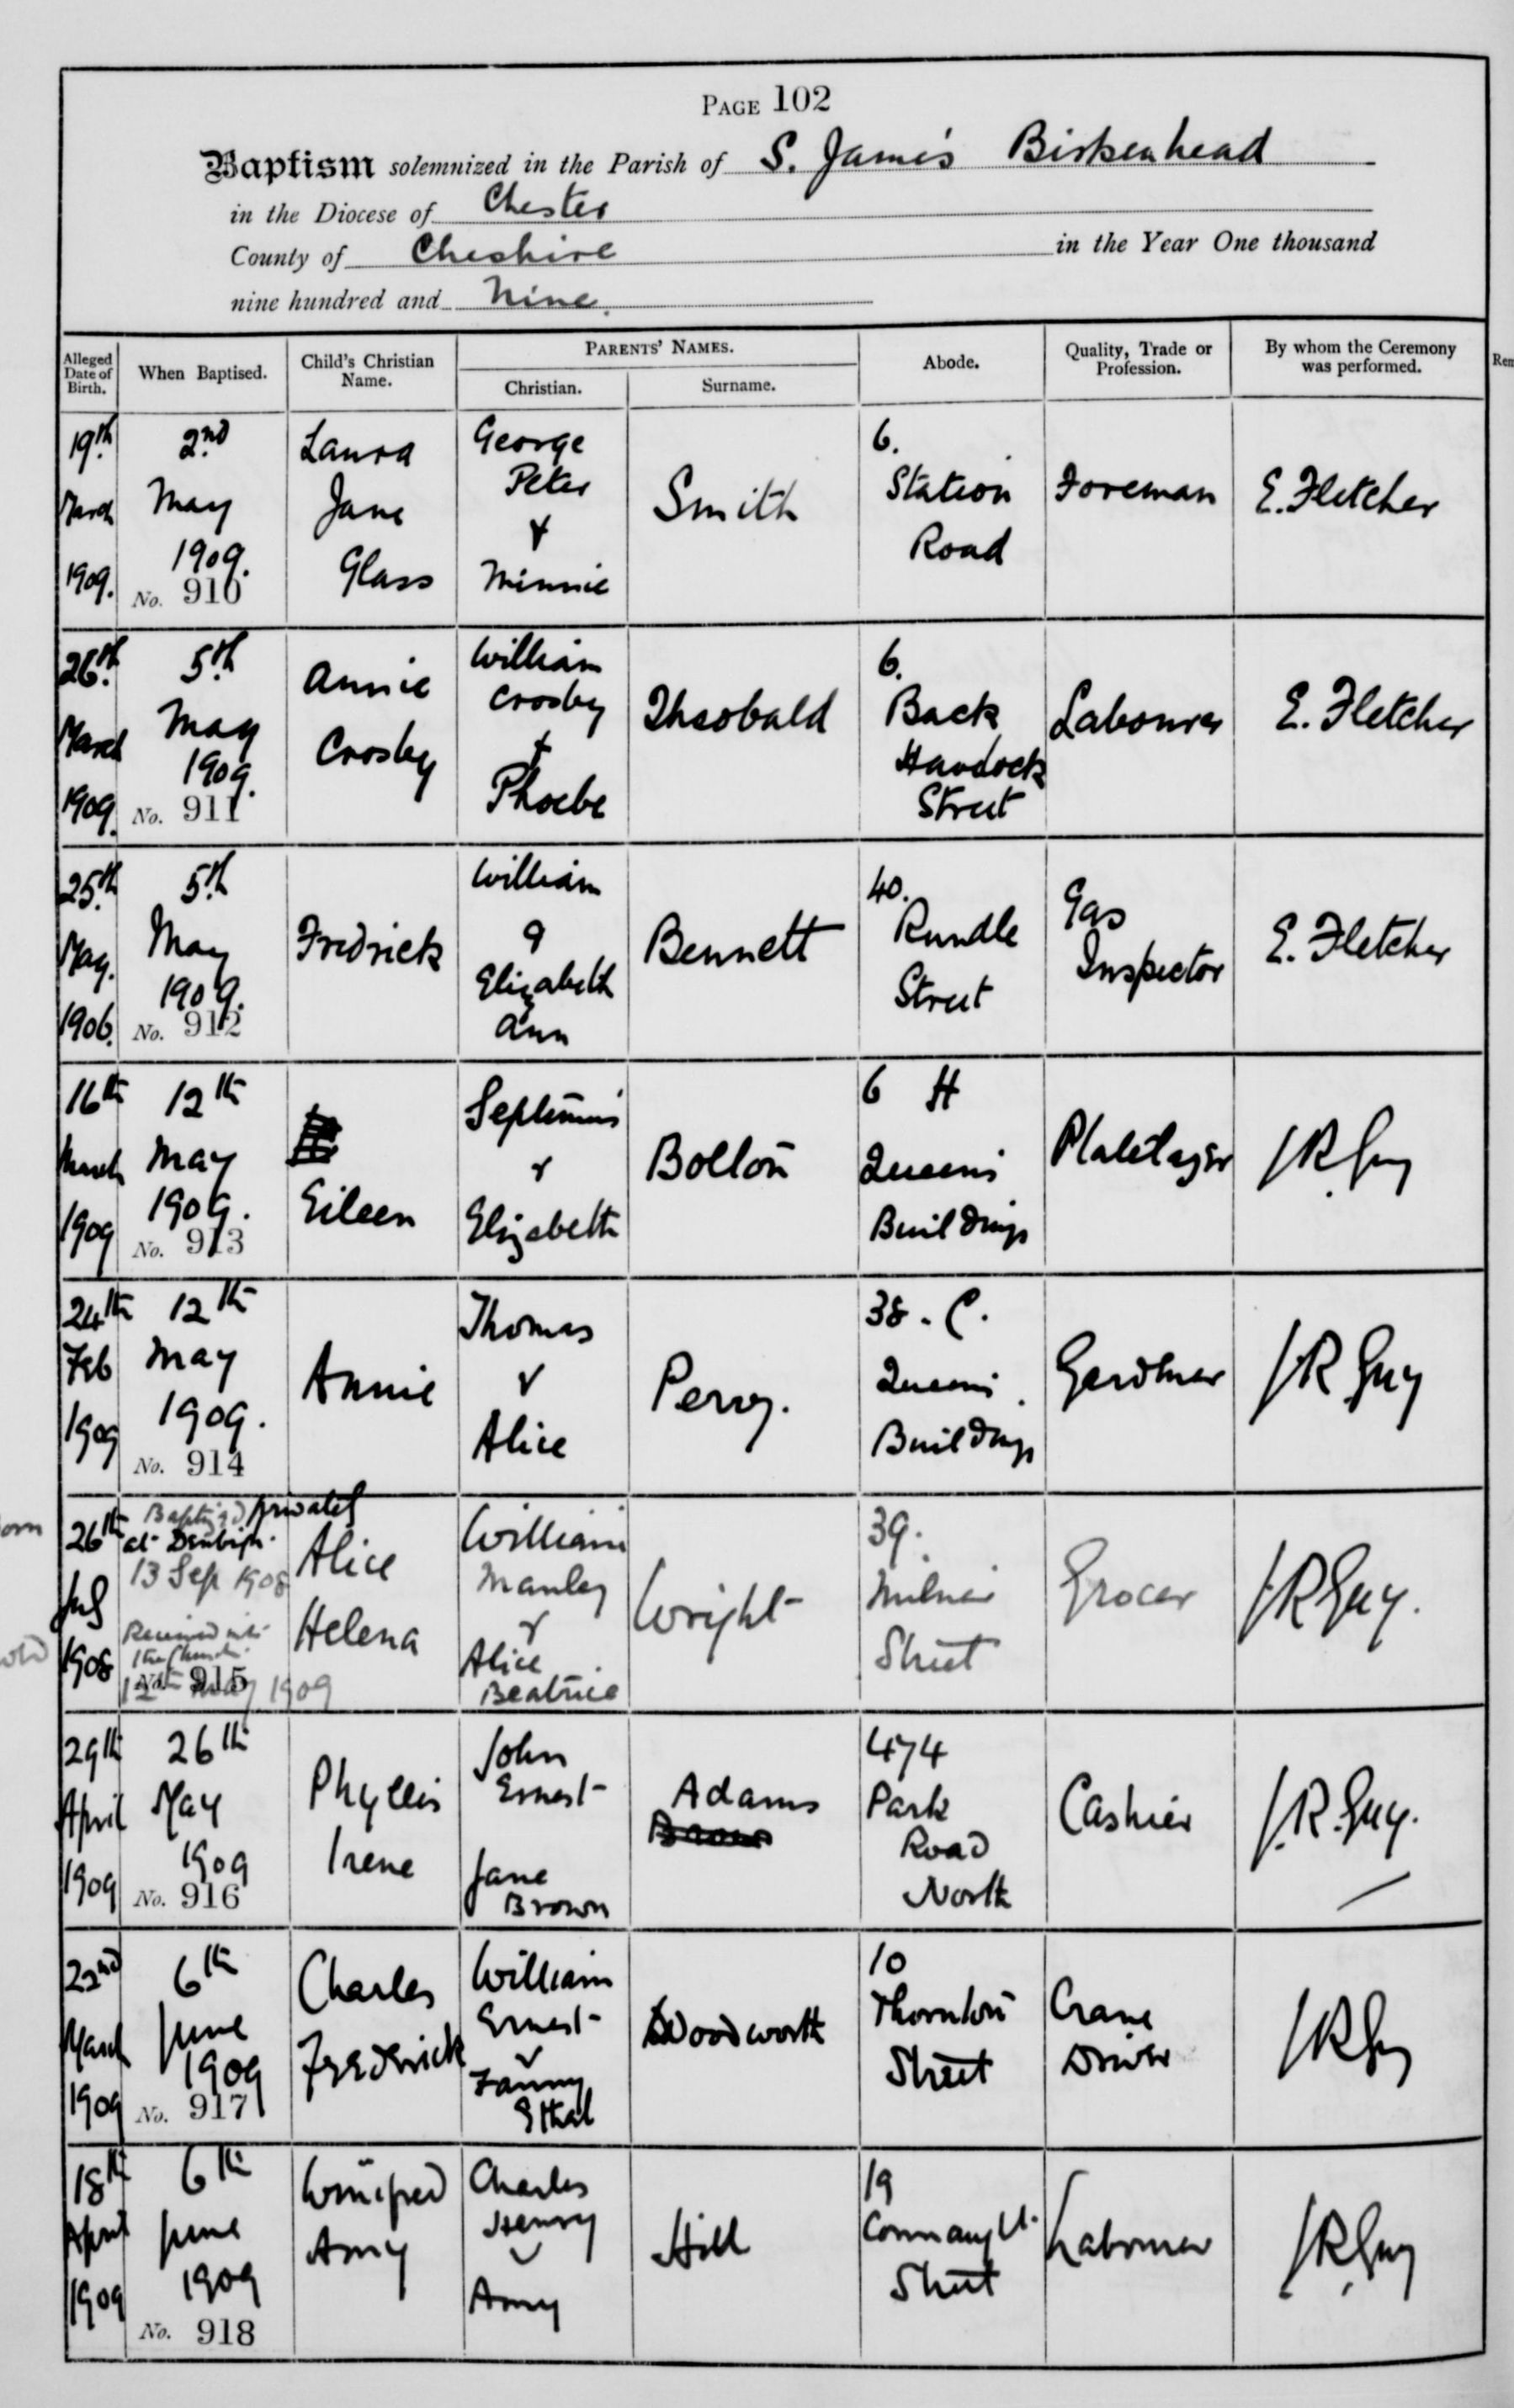 PAGE 102
Baptism solemnized in the Parish of S. James Birkenhead
in the Diocese of Chester
County of Cheshire in the Year One thousand
nine hundred and Nine.
Alleged Date of Birth. When Baptised. Child's Christian Name. PARENTS' NAMES. Christian. Surname. Abode. Quality, Trade or Profession. By whom the Ceremony was performed.
19th March 1909. 2nd May 1909. No. 910 Laura Jane Glass George Peter & Minnie Smith 6. Station Road Foreman E. Fletcher
26th March 1909. 5th May 1909. No. 911 Annie Crosby William Crosby & Phoebe Theobald 6. Back Street Labourer E. Fletcher
25th May. 1906. 5th May 1909. No. 912 Fredrick William & Elizabeth Ann Bennett 40. Rundle Street Gas Inspector E. Fletcher
16th March 1909 12th May 1909. No. 913 Eileen Septimus & Elizabeth Bolton 6 H Queens Buildings Platelayer J R Guy
24th Feb 1909 12th May 1909. No. 914 Annie Thomas & Alice Perry. 38. C. Queens Buildings Gardener J R Guy
26th July 1908 Baptized privately at Denbigh. 13 Sep 1908 Received into the Church 12th May 1909 No. 915 Alice Helena William Manley & Alice Beatrice Wright 39. Milner Street Grocer J R Guy.
29th April 1909 26th May 1909 No. 916 Phyllis Irene John Ernest Jane Brown Adams 474 Park Road North Cashier J. R. Guy.
22nd March 1909 6th June 1909 No. 917 Charles Frederick William Ernest & Fanny Ethel Woodworth 10 Thornton Street Crane Driver J R Guy
18th April 1909 6th June 1909 No. 918 Winifred Amy Charles Henry & Amy Hill 19 Connaught Street Labourer J R Guy